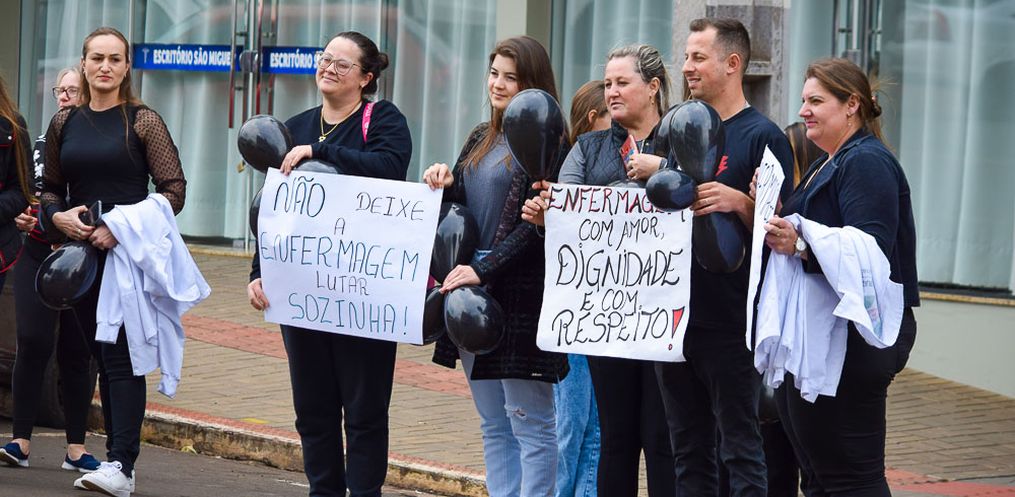 ESCRITÓRIO SÃO MIGUEL
ESCRITÓRIO SÃO
NÃO DEIXE
A
ENFERMAGEM
LUTAR
SOZINHA!
ENFERMAGEM
COM AMOR,
DIGNIDADE
E COM
RESPEITO!